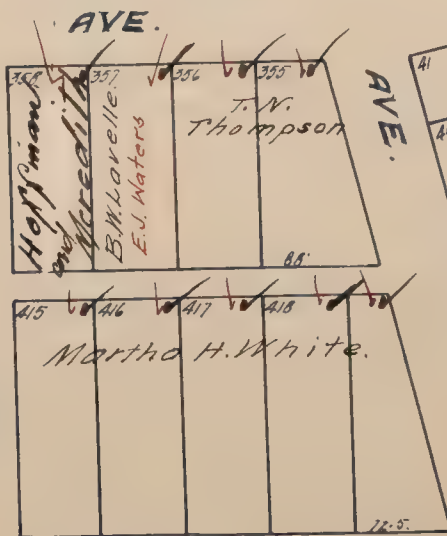 AVE.
358
357
356
355
41
Hoffman
and
Meredith
B.W. Lavelle.
E.J. Waters
T.N.
Thompson
AVE.
88'
415
416
417
418
Martha H. White.
72.5.